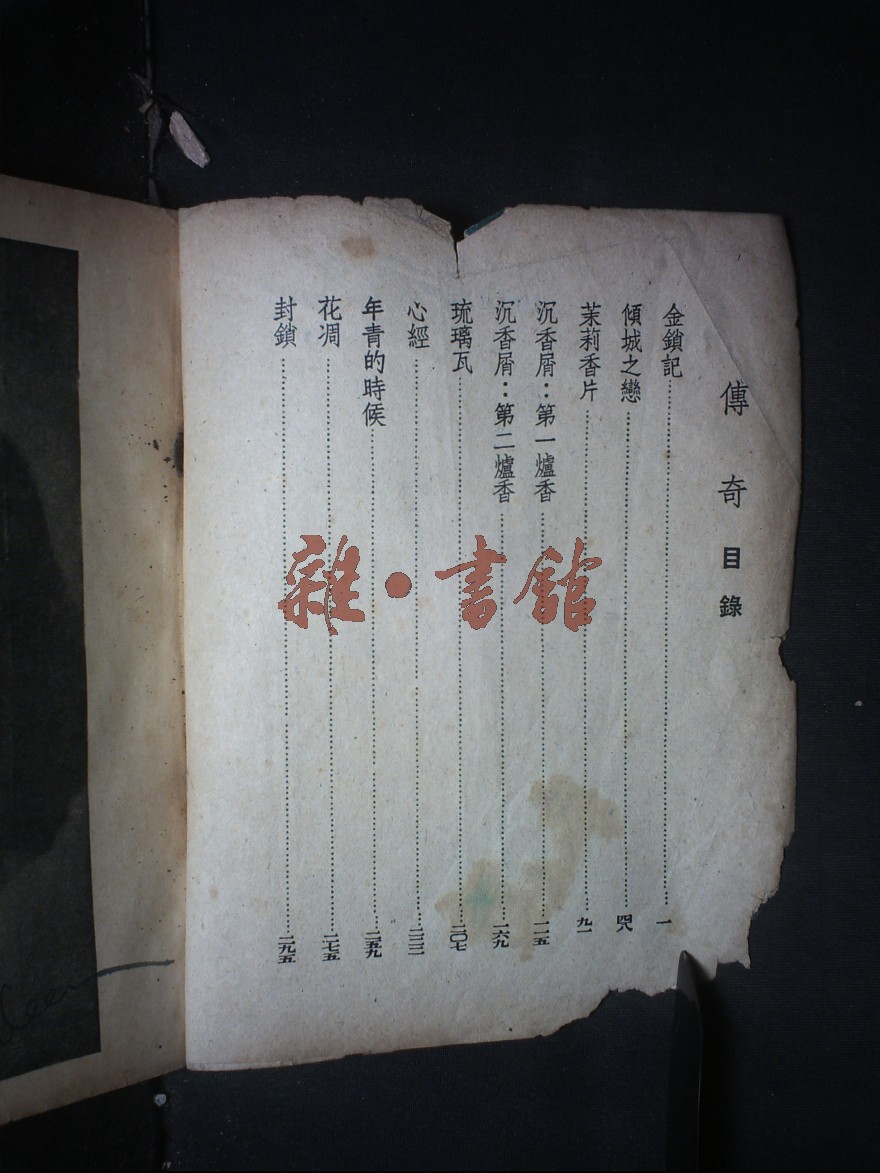 傳奇目錄
金鎖記……一
傾城之戀……四八
茉莉香片……九一
沉香屑：第一爐香……一一五
沉香屑：第二爐香……一六九
琉璃瓦……二〇七
心經……二二二
年青的時候……二五九
花凋……二七五
封鎖……二九五
雜•書館